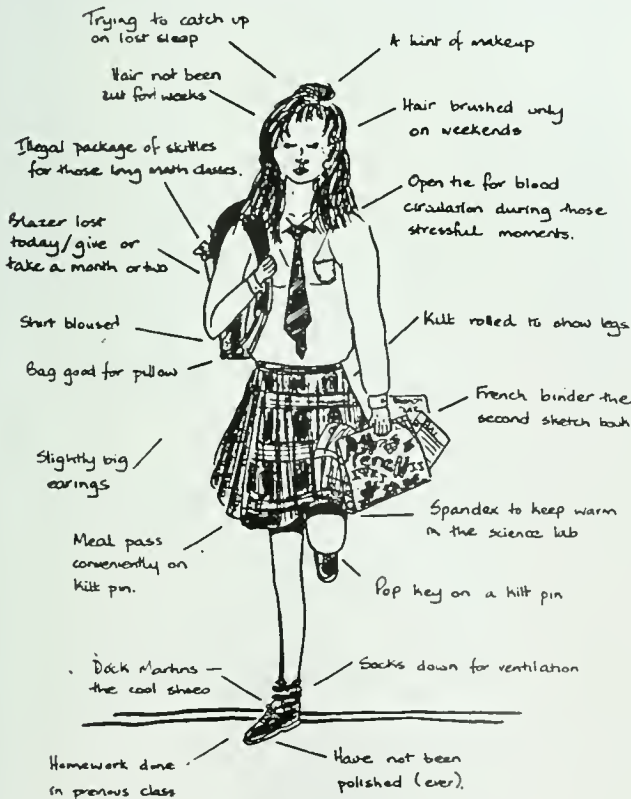 Trying to catch up
on lost sleep
A hint of makeup
Hair not been
cut for weeks
Hair brushed only
on weekends
Illegal package of skittles
for those long math classes.
Open tie for blood
circulation during those
stressful moments.
Blazer lost
today/give or
take a month or two
Shirt bloused
Kilt rolled to show legs
Bag good for pillow
French binder the
second sketch book
Slightly big
earings
Spandex to keep warm
in the science lab
Meal pass
conveniently on
kilt pin.
Pop key on a kilt pin
Dock Martins
the cool shoes
Socks down for ventilation
Homework done
in previous class
Have not been
polished (ever).